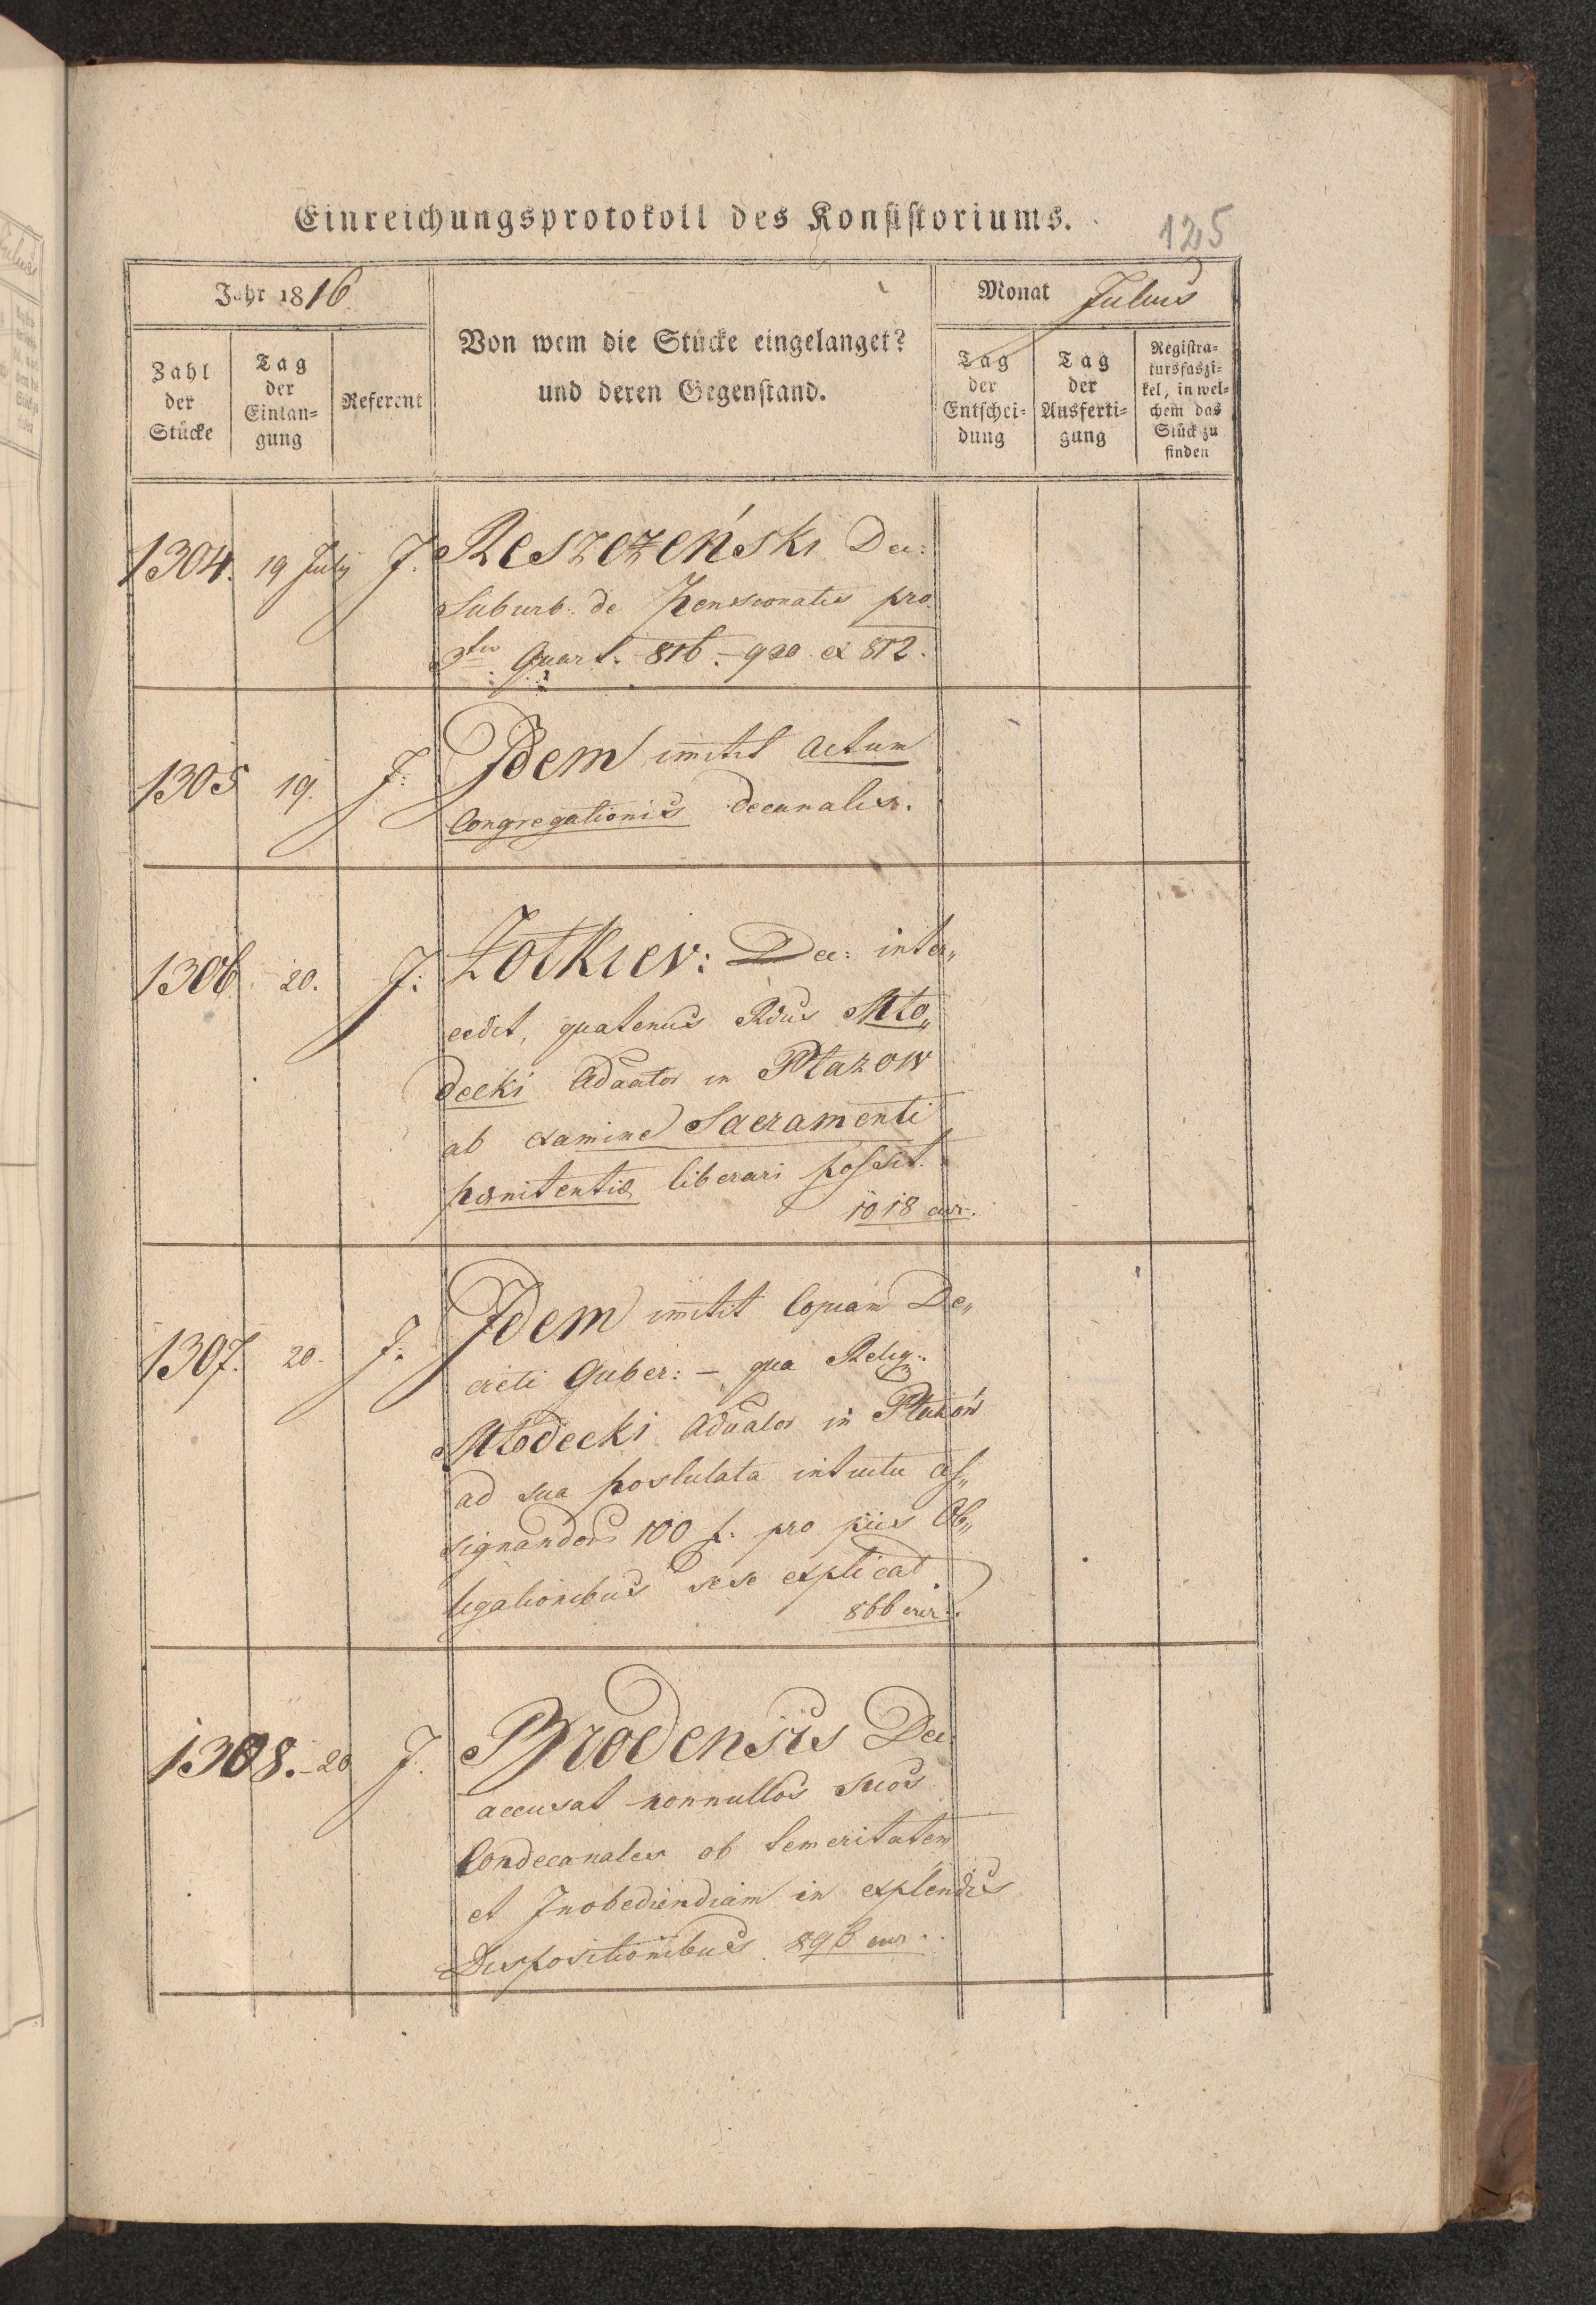 Einreichungsprotokoll des Konsistoriums.
125
Jahr 1816
Von wem die Stücke eingelanget?
und deren Gegenstand.
Monat Julius
Zahl
der
Stücke
Tag
der
Einlan=
gung
Referent
Tag
der
Entschei=
dung
Tag
der
Ausferti=
gung
Registra=
tursfaszi=
kel, in wel=
chem das
Stück zu
finden
1304. 19 July J. Reszczeński Dec:
Suburb. de Pensionatis pro
3tio Quart. 816. – 920 ex 812.
1305 19. J: Idem imitit Actum
Congregationis Decanalis.
1306. 20. J: Żołkiev: Dec: inter„
cedit, quatenus Rdus Mło„
decki Adãator in Płazow
ab examine Sacramenti
pænitentiæ liberari possit.
1018 cur.
1307. 20. J: Idem imitit Copiam De„
creti Guber: – qua Relig:
Młodecki Adãator in Płazow
ad sua postulata intuitu as„
signandor 100 f. pro piis Ob„
ligationibus sese explicat
866 cur.
1308. – 20 J. Brodensis Dec
accusat nonnullos suos
Condecanales ob temeritatem
et Inobediendiam in explendis
Dispositionibus. 896 cur.